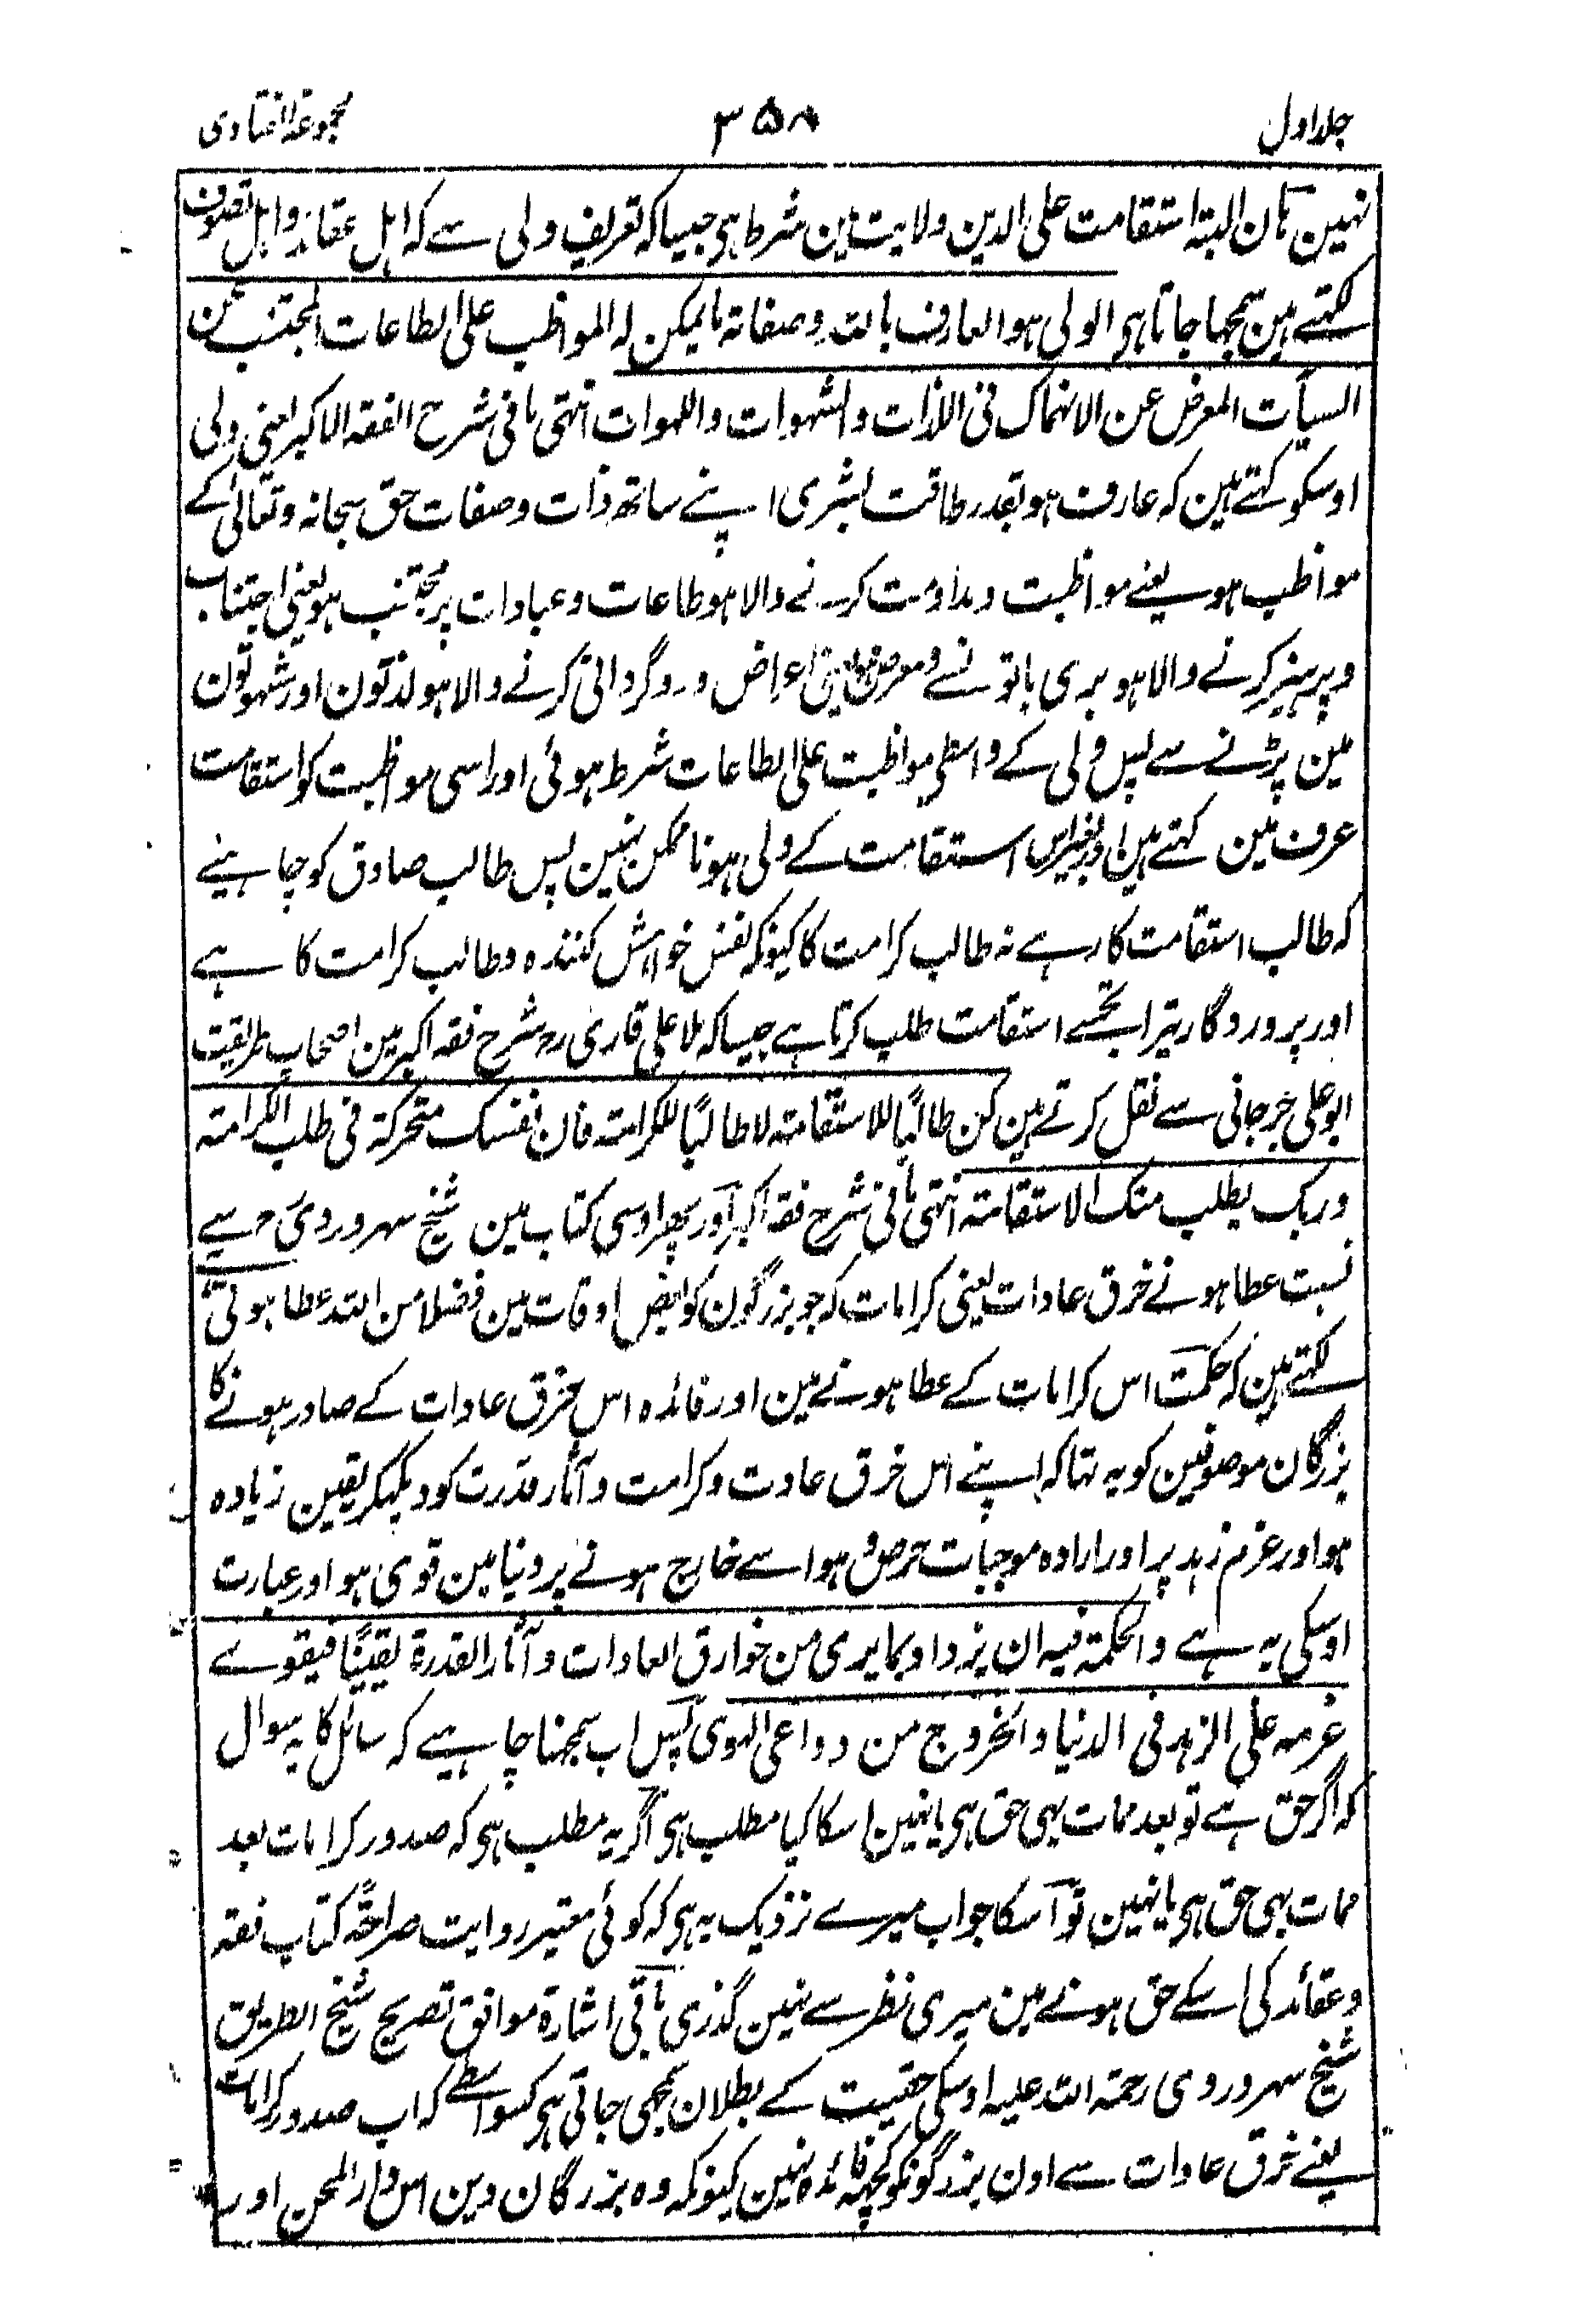 جلد اول ۳۵۸ مجموعۃ الفتاوی
نہین ہان البتہ استقامت علی الدین ولایت مین شرط ہی جیسا کہ تعریف ولی سے کہ اہل عقائد و اہل تصوف
لکہتے ہین سمجہا جاتا ہی الولی ہو العارف باللہ وصفاتہ ما یمکن لہ المواظب علی الطاعات المجتنب عن
السیآت المعرض عن الانہماک فی اللذات والشہوات واللہوات انتہی ما فی شرح الفقہ الاکبر یعنی ولی
اوسکو کہتے ہین کہ عارف ہو بقدر طاقت بشری اپنے ساتھ ذات وصفات حق سبحانہ وتعالیٰ کے
مواظب ہو یعنے مواظبت ومداومت کرنے والا ہو طاعات وعبادات پر مجتنب ہو یعنی اجتناب
وپرہیز کرنے والا ہو بری باتونسے ومعرض ہو یعنی اعراض وروگردانی کرنے والا ہو لذتون اور شہوتون
مین پڑنے سے پس ولی کے واسطے مواظبت علی الطاعات شرط ہوئی اور اسی مواظبت کو استقامت
عرف مین کہتے ہین اور بغیر اس استقامت کے ولی ہونا ممکن نہین پس طالب صادق کو چاہئیے
کہ طالب استقامت کا رہے نہ طالب کرامت کا کیونکہ نفس خواہش کنندہ وطالب کرامت کا ہے
اور پروردگار تیرا تجھسے استقامت طلب کرتا ہے جیسا کہ ملا علی قاری رح شرح فقہ اکبر مین اصحاب طریقت
ابو علی جرجانی سے نقل کرتے ہین کن طالبًا للاستقامتہ لا طالبًا للکرامتہ فان نفسک متحرکۃ فی طلب الکرامتہ
وربک یطلب منک الاستقامتہ انتہی ما فی شرح فقہ اکبر اور پھر اوسی کتاب مین شیخ سہروردی رح سے
نسبت عطا ہونے خرق عادات یعنی کرامات کہ جو بزرگون کو بعض اوقات مین فضلا من اللہ عطا ہوتی
لکہتے ہین کہ حکمت اس کرامات کے عطا ہونے مین اور فائدہ اس خرق عادات کے صادر ہونے کا
بزرگان موصوفین کو یہ تہا کہ اپنے اس خرق عادت وکرامت وآثار قدرت کو دیکہکر یقین زیادہ
ہو اور عزم زہد پر اور ارادہ موجبات حرص وہوا سے خارج ہونے پر دنیا مین قوی ہو اور عبارت
اوسکی یہ ہے والحکمۃ فیہ ان یزداد بما یری من خوارق العادات وآثار القدرۃ یقینًا فیقوے
عزمہ علی الزہد فی الدنیا والخروج من دواعی الہوی پس اب سمجہنا چاہیے کہ سائل کا یہ سوال
کہ اگر حق ہے تو بعد ممات بہی حق ہی یا نہین اسکا کیا مطلب ہی اگر یہ مطلب ہی کہ صدور کرامات بعد
ممات بہی حق ہی یا نہین تو اسکا جواب میرے نزدیک یہ ہی کہ کوئی معتبر روایت صراحۃً کتاب فقہ
وعقائد کی اسکے حق ہونے مین میری نظر سے نہین گذری باقی اشارۃ موافق تصریح شیخ الطریق
شیخ سہروردی رحمۃ اللہ علیہ اوسکی حقیت کے بطلان سمجہی جاتی ہی کسواسطے کہ اب صدور کرامات
یعنے خرق عادات سے اون بزرگونکو کچہہ فائدہ نہین کیونکہ وہ بزرگان دین اس دار المحن اور